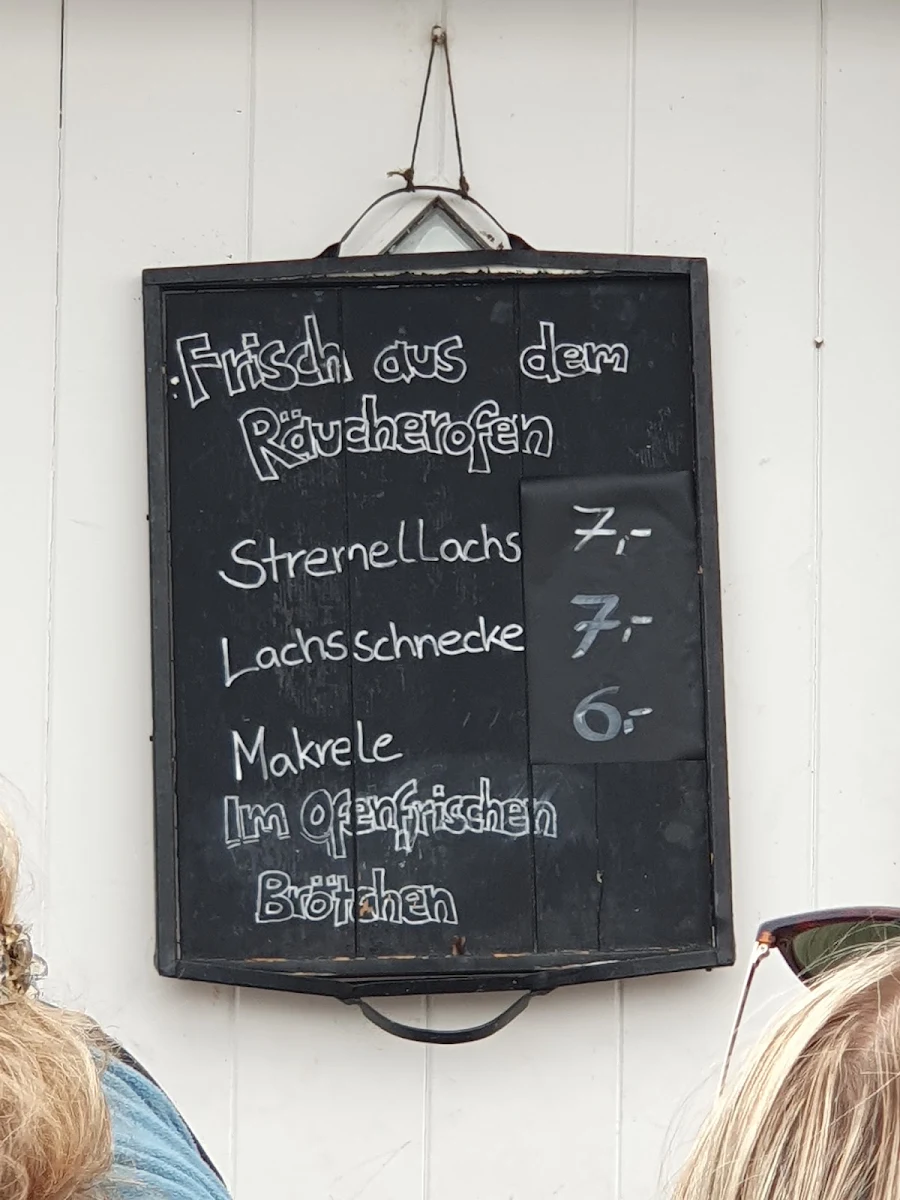 Frisch aus dem
Räucherofen
Stremellachs 7,-
Lachsschnecke 7,-
Makrele 6,-
Im Ofenfrischen
Brötchen